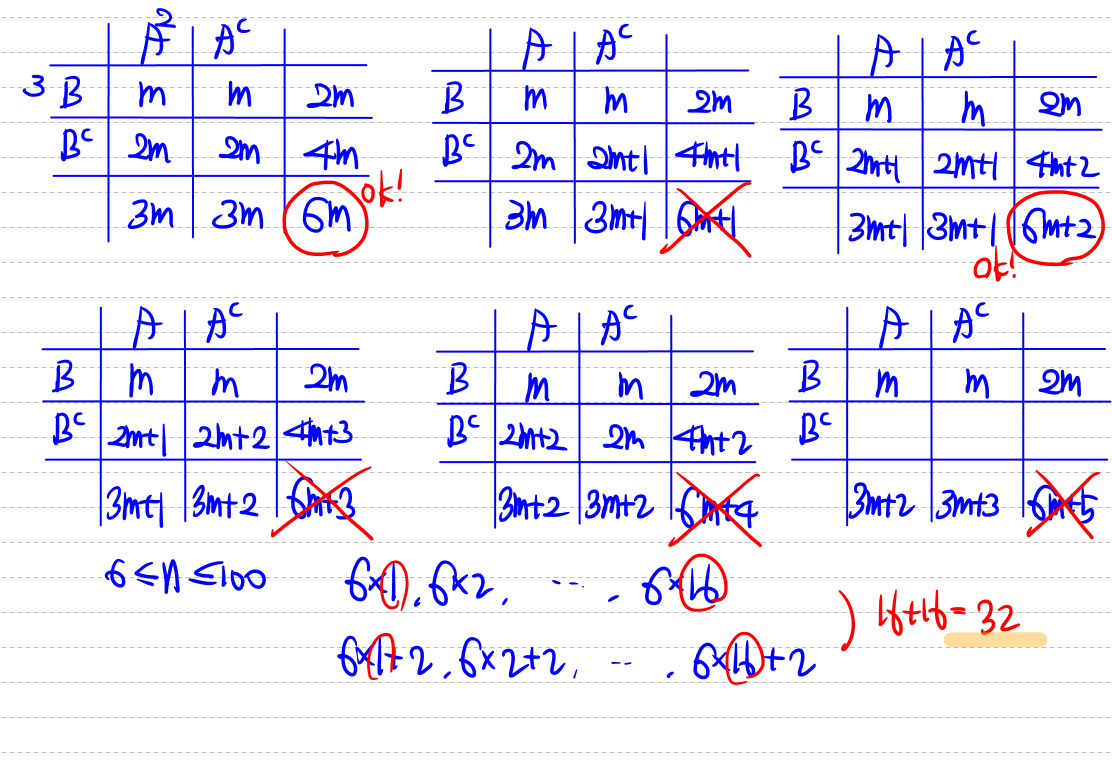 A 2 A^c
3 B m m 2m
B^c 2m 2m 4m
3m 3m 6m ok!
A A^c
B m m 2m
B^c 2m 2m+1 4m+1
3m 3m+1 6m+1
A A^c
B m m 2m
B^c 2m+1 2m+1 4m+2
3m+1 3m+1 6m+2
ok!
A A^c
B m m 2m
B^c 2m+1 2m+2 4m+3
3m+1 3m+2 6m+3
A A^c
B m m 2m
B^c 2m+2 2m 4m+2
3m+2 3m+2 6m+4
A A^c
B m m 2m
B^c
3m+2 3m+3 6m+5
6≤n≤100 6×1, 6×2, ..., 6×16
6×1+2, 6×2+2, ..., 6×16+2
) 16+16=32